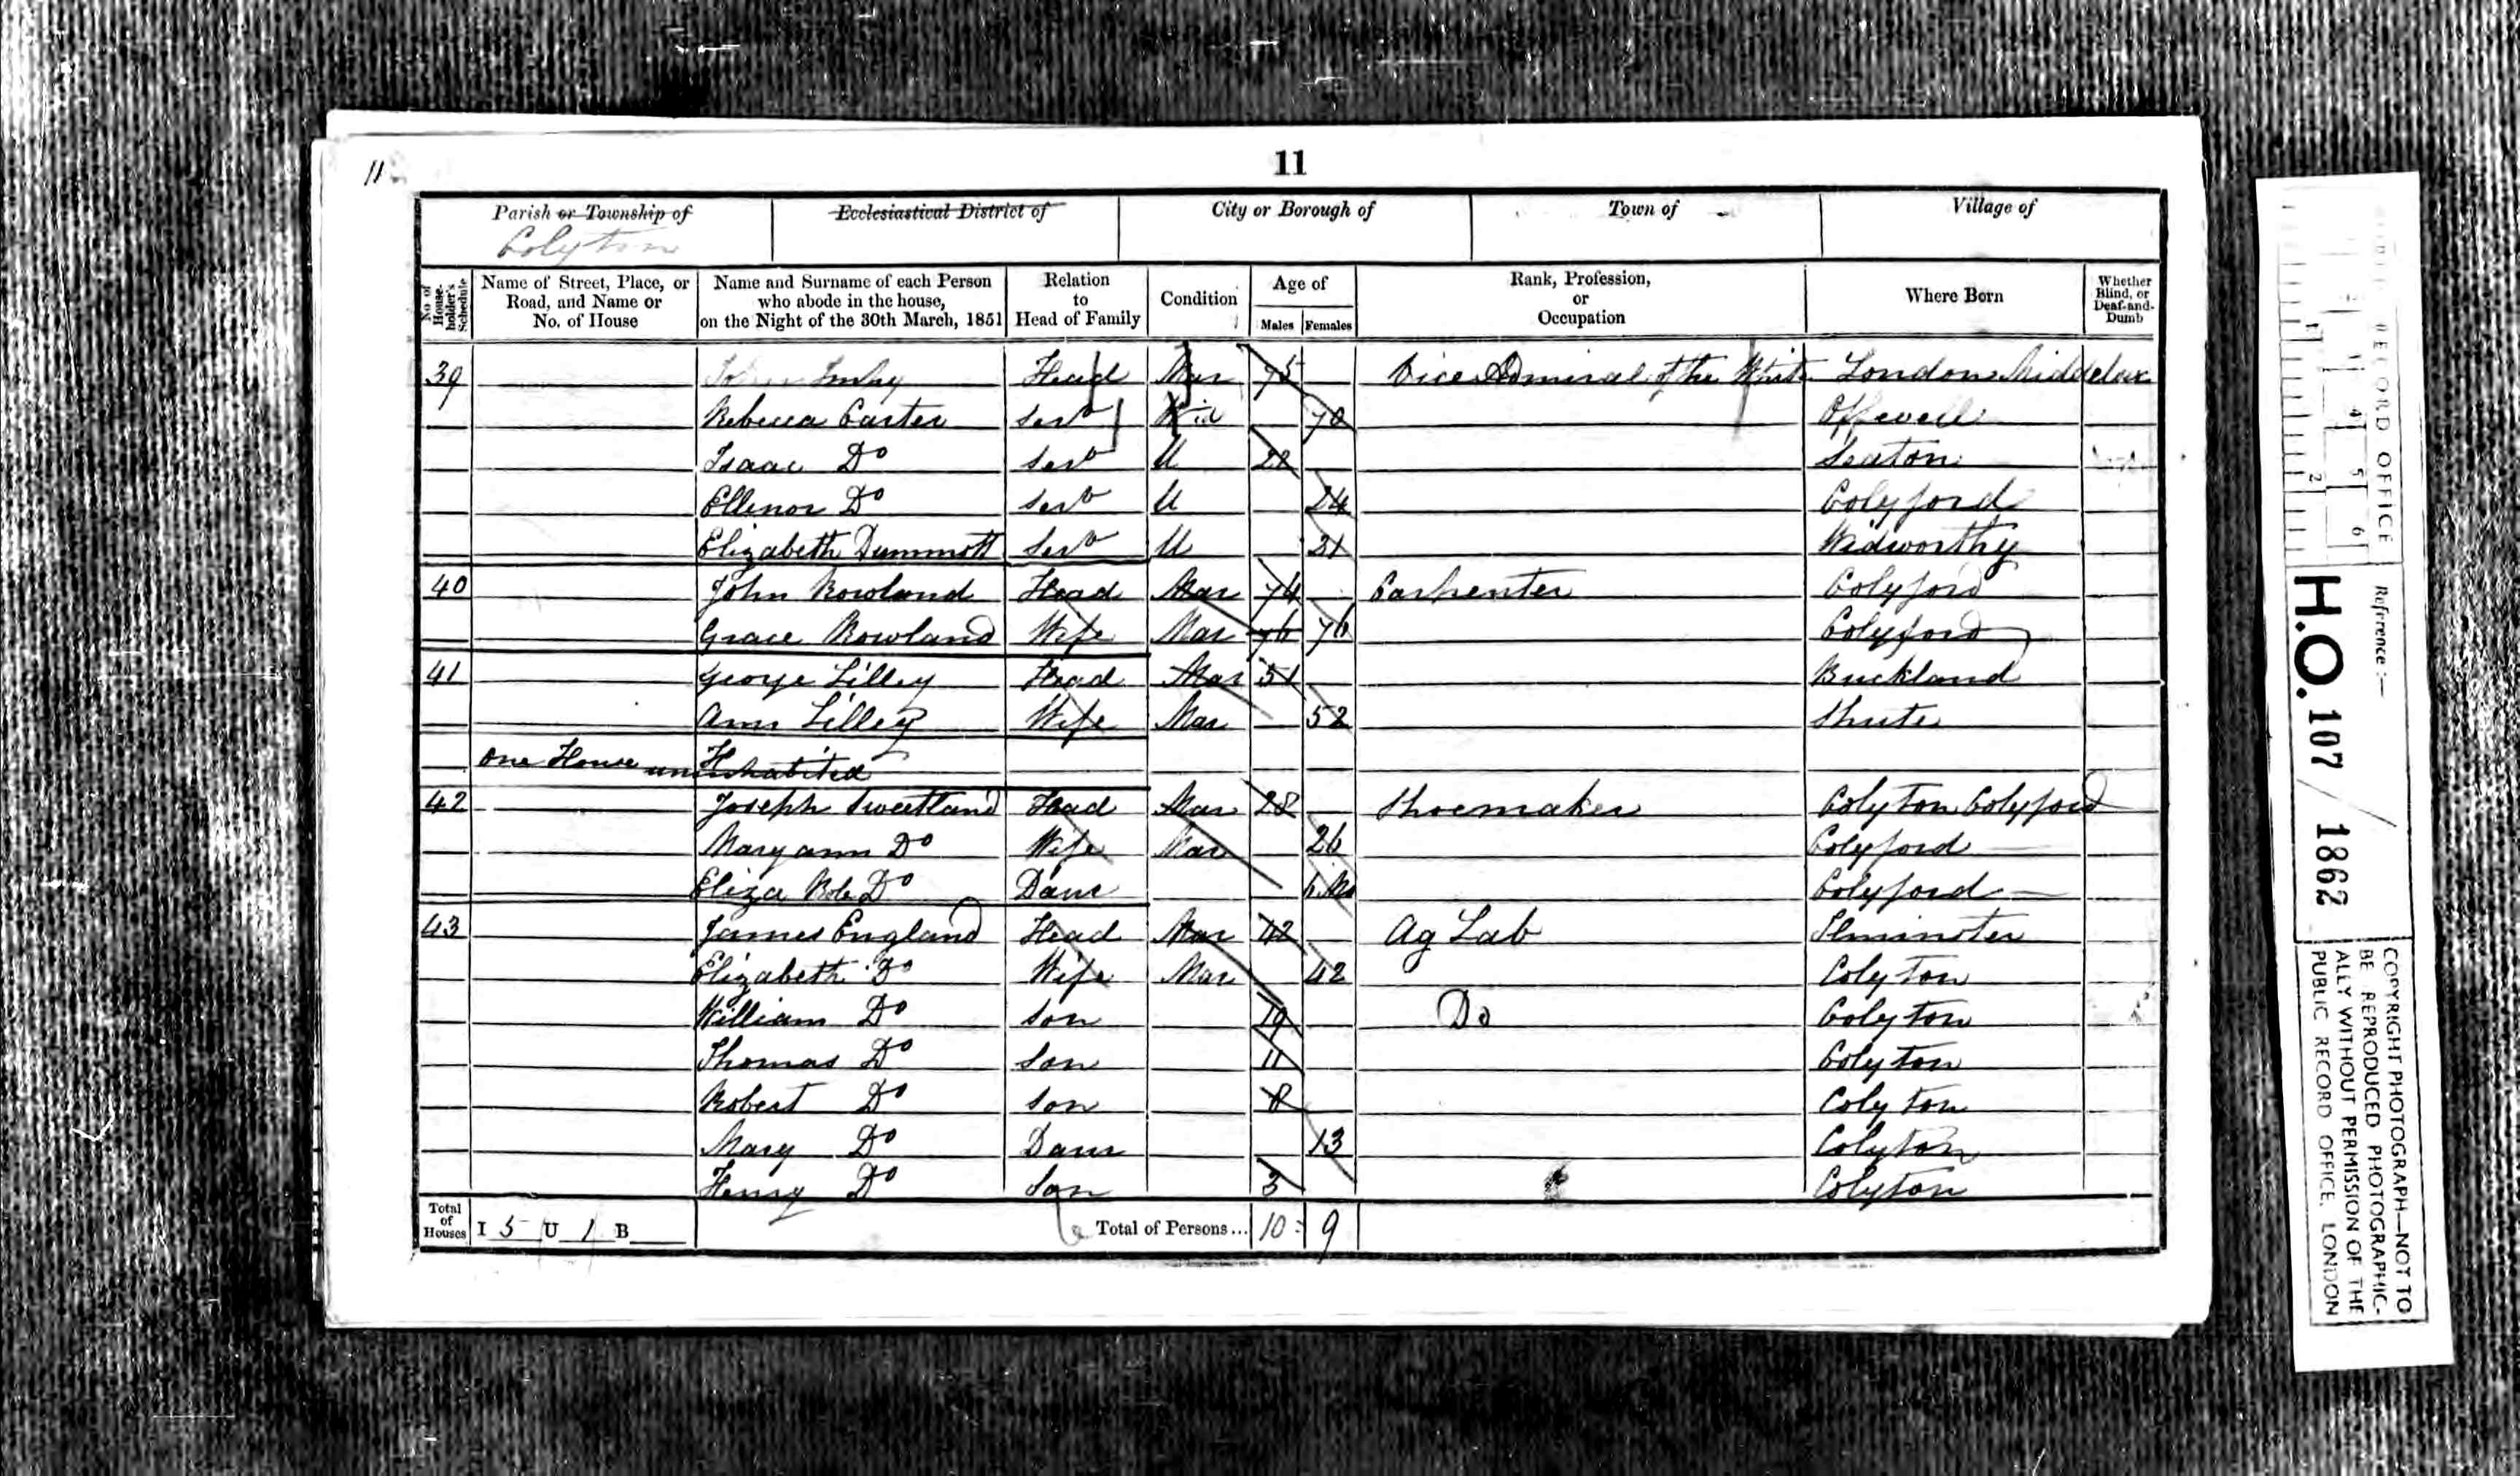 11
11
Parish or Township of Ecclesiastical District of City or Borough of Town of Village of
Colyton
No. of House-holder's Schedule
Name of Street, Place, or Road, and Name or No. of House
Name and Surname of each Person who abode in the house, on the Night of the 30th March, 1851
Relation to Head of Family
Condition
Age of
Males Females
Rank, Profession, or Occupation
Where Born
Whether Blind, or Deaf-and-Dumb
39 John Head Mar 75 Vice Admiral of the White London Middelax
Rebecca Carter Serv Wid 70 Offwell
Isaac Do Serv U 22 Seaton
Ellenor Do Serv U 24 Colyford
Elizabeth Dummott Serv U 21 Widworthy
40 John Rowland Head Mar 74 Carpenter Colyford
Grace Rowland Wife Mar 76 76 Colyford
41 George Lilley Head Mar 51 Buckland
Ann Lilley Wife Mar 52 Shute
One House uninhabited
42 Joseph Sweetland Head Mar 28 Shoemaker Colyton Colyford
Maryann Do Wife Mar 26 Colyford
Eliza Do Daur 6 Mo Colyford
43 James England Head Mar 42 Ag Lab Ilminster
Elizabeth Do Wife Mar 42 Colyton
William Do Son 19 Do Colyton
Thomas Do Son 11 Colyton
Robert Do Son 8 Colyton
Mary Do Daur 13 Colyton
Henry Do Son 3 Colyton
Total of Houses I 5 U 1 B Total of Persons... 10 9
RECORD OFFICE
1 2
4 5 6
Reference:—
H.O. 107 / 1862
COPYRIGHT PHOTOGRAPH—NOT TO
BE REPRODUCED PHOTOGRAPHIC-
ALLY WITHOUT PERMISSION OF THE
PUBLIC RECORD OFFICE, LONDON